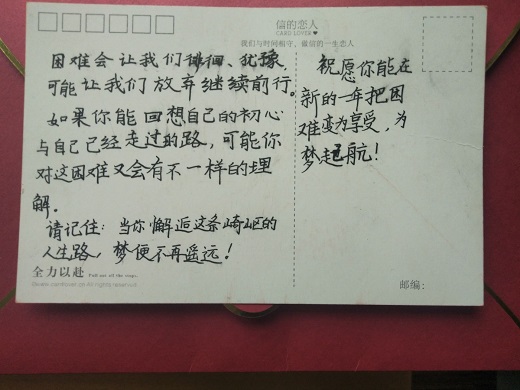 信的恋人
CARD LOVER
我们与时间相守，做信的一生恋人
困难会让我们徘徊、犹豫
可能让我们放弃继续前行。
如果你能回想自己的初心
与自己已经走过的路，可能你
对这困难又会有不一样的理
解。
请记住：当你懈逅这条崎岖的
人生路，梦便不再遥远！
全力以赴
祝愿你能在
新的一年把困
难变为享受，为
梦起航！
邮编：